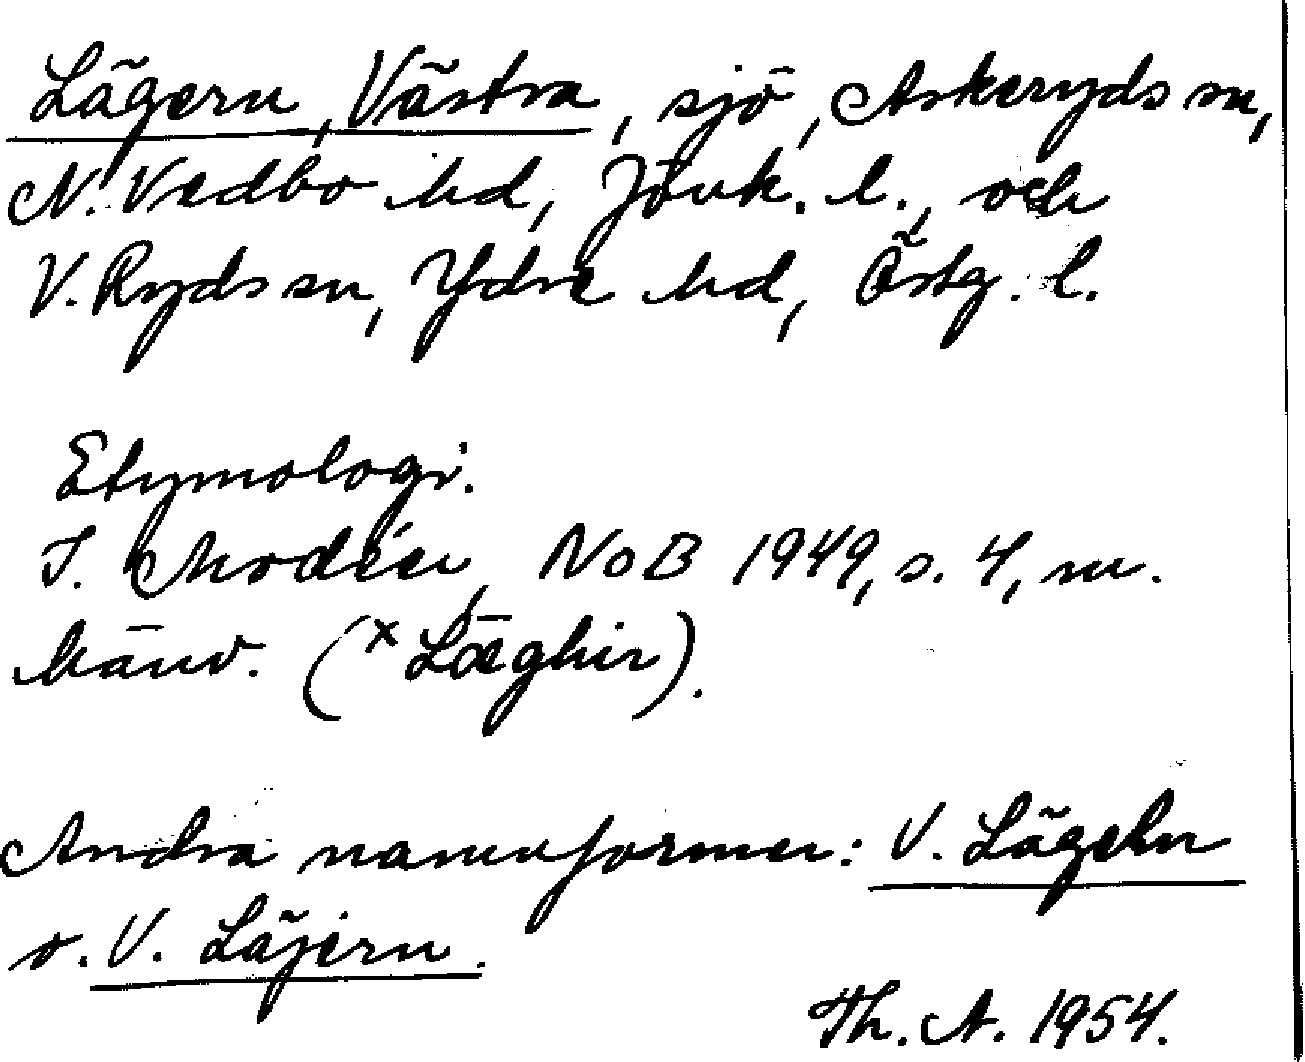 Lägern, Västra, sjö, Askeryds sn,
N. Vedbo hd, Jönk. l., och
V. Ryds sn, Ydre hd, Östg. l.
Etymologi.
I. Modéer, NoB 1949, s. 4, m.
hänv. (×Lǣghir).
Andra namnformer: V. Lägehn
o. V. Läjern.
Th. A. 1954.